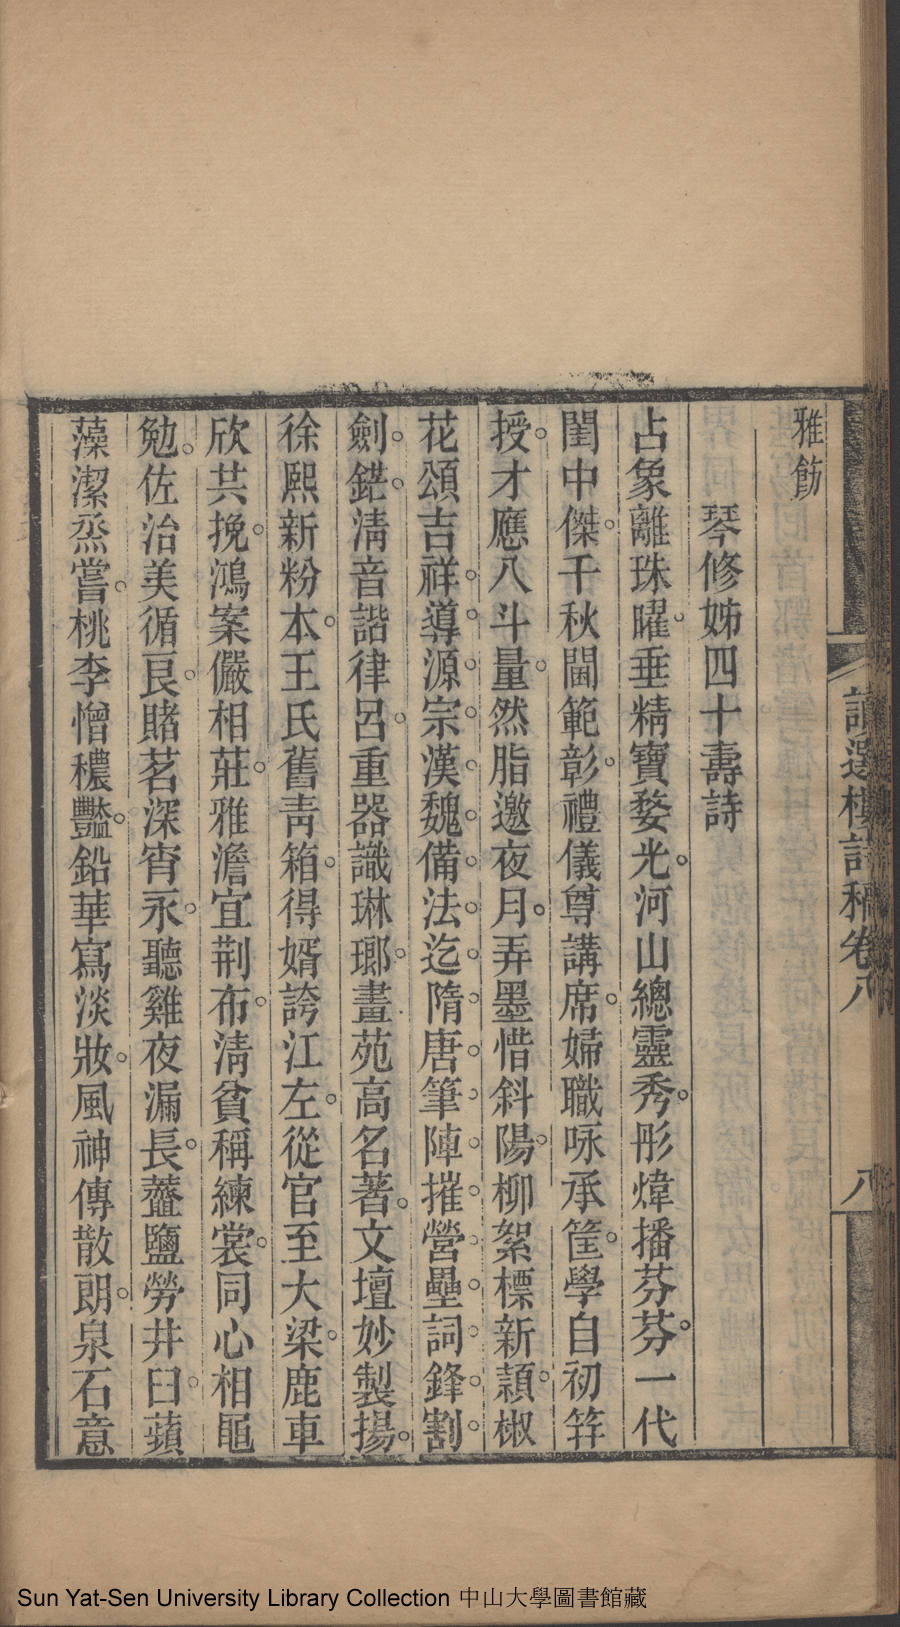 讀選樓詩稿卷八
八
雅飭
琴修姊四十壽詩
占象離珠曜。垂精寶婺光。河山總靈秀。彤煒播芬芬。一代
閨中傑。千秋閫範彰。禮儀尊講席。婦職咏承筐。學自初筓
授。才應八斗量。然脂邀夜月。弄墨惜斜陽。柳絮標新頴。椒
花頌吉祥。導。源。宗。漢。魏。備。法。迄。隋。唐。筆。陣。摧。營。壘。詞。鋒。割。
劍。鋩。淸音諧律呂。重器識琳瑯。畫苑高名著。文壇妙製揚。
徐熙新粉本。王氏舊靑箱。得婿誇江左。從官至大梁。鹿車
欣共挽。鴻案儼相莊。雅澹宜荆布。淸貧稱練裳。同心相黽
勉。佐治美循良。賭茗深宵永。聽雞夜漏長。虀鹽勞井臼。蘋
藻潔烝嘗。桃李憎穠豔。鉛華寫淡妝。風神傳散朗。泉石意
Sun Yat-Sen University Library Collection 中山大學圖書館藏